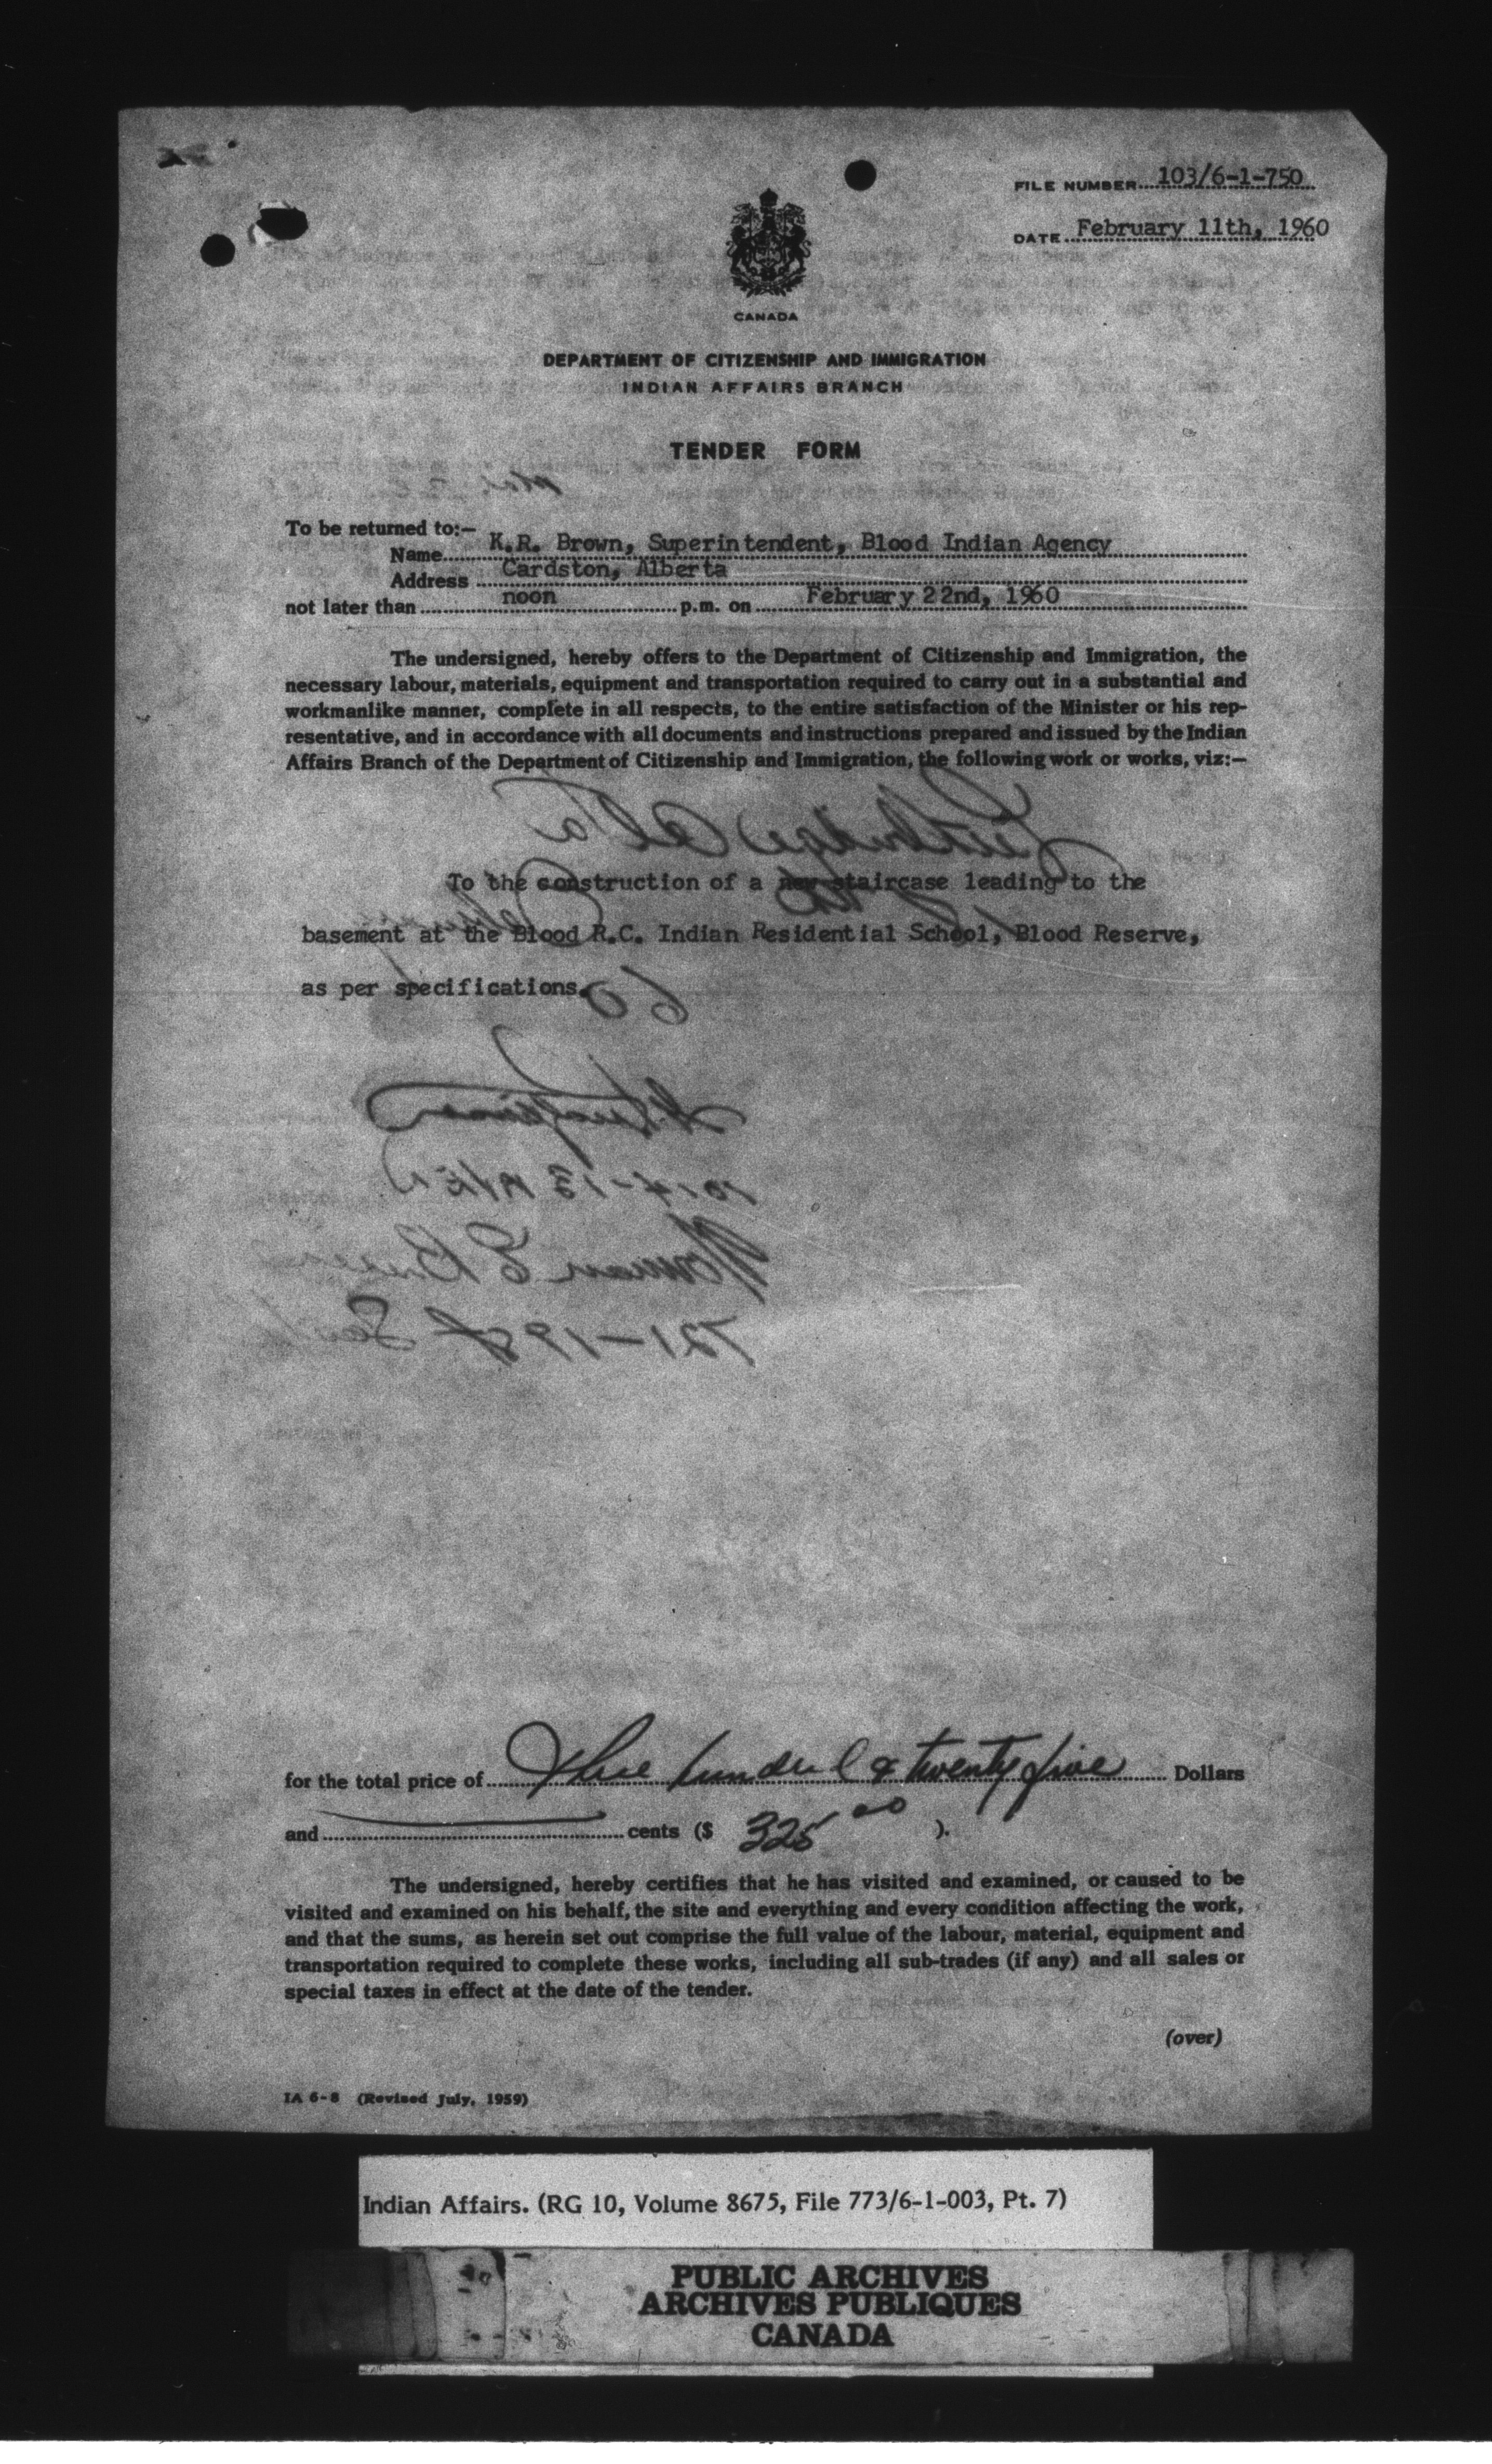 FILE NUMBER 103/6-1-750
DATE February 11th, 1960
CANADA
DEPARTMENT OF CITIZENSHIP AND IMMIGRATION
INDIAN AFFAIRS BRANCH
TENDER FORM
To be returned to:—
Name K.R. Brown, Superintendent, Blood Indian Agency
Address Cardston, Alberta
not later than noon p.m. on February 22nd, 1960
The undersigned, hereby offers to the Department of Citizenship and Immigration, the
necessary labour, materials, equipment and transportation required to carry out in a substantial and
workmanlike manner, complete in all respects, to the entire satisfaction of the Minister or his rep-
resentative, and in accordance with all documents and instructions prepared and issued by the Indian
Affairs Branch of the Department of Citizenship and Immigration, the following work or works, viz:—
Lethbridge Alta
To the construction of a new staircase leading to the
basement at the Blood R.C. Indian Residential School, Blood Reserve,
as per specifications.
60
1014-13 AVE N
Norman E
721-19 St
for the total price of Three hundred & twenty five Dollars
and cents ($ 325 00 ).
The undersigned, hereby certifies that he has visited and examined, or caused to be
visited and examined on his behalf, the site and everything and every condition affecting the work,
and that the sums, as herein set out comprise the full value of the labour, material, equipment and
transportation required to complete these works, including all sub-trades (if any) and all sales or
special taxes in effect at the date of the tender.
(over)
IA 6-8 (Revised July, 1959)
Indian Affairs. (RG 10, Volume 8675, File 773/6-1-003, Pt. 7)
PUBLIC ARCHIVES
ARCHIVES PUBLIQUES
CANADA